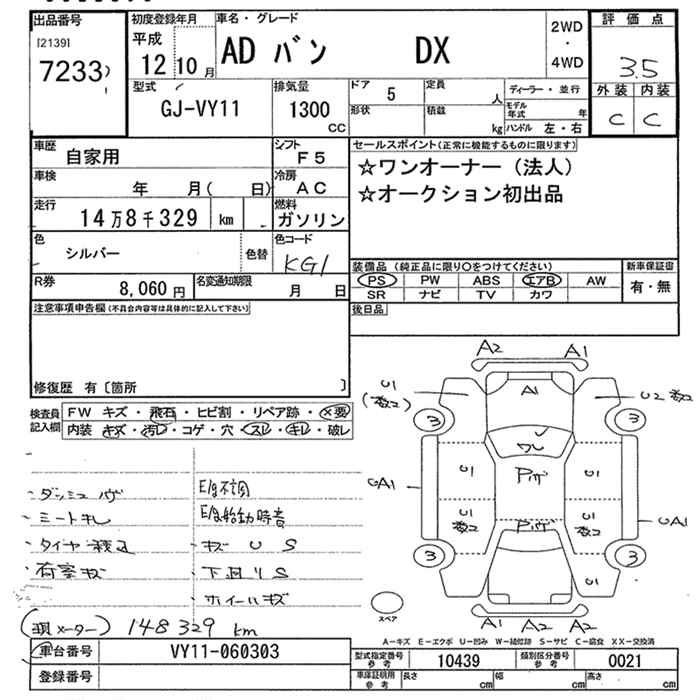 出品番号 初度登録年月 車名・グレード 2WD ・ 4WD 評価点
[2139] 7233 平成 12 10月 AD バン DX 3.5
型式 排気量 ドア 定員 ディーラー・並行 外装 内装
GJ-VY11 1300 CC 5 人 モデル年式 年 C C
形状 積載 kg ハンドル 左・右
車歴 自家用 シフト F5 セールスポイント(正常に機能するものに限ります)
車検 年 月( 日) 冷房 AC ☆ワンオーナー(法人)
走行 14万8千329 km 燃料 ガソリン ☆オークション初出品
色 シルバー 色替 色コード KG1
装備品(純正品に限り○をつけてください) 新車保証書
PS PW ABS エアB AW 有・無
SR ナビ TV カワ
R券 8,060円 名変通知期限 月 日
後日品
注意事項申告欄(不具合内容等は具体的に記入して下さい)
修復歴 有〔箇所 〕
検査員記入欄 FW キズ・飛石・ヒビ割・リペア跡・×要
内装 キズ・汚レ・コゲ・穴・スレ・キレ・破レ
A2 A1
U1 A1 U2
3 ワレ 3
UA1 U1 U1 UA1
3 3
U1
スペア
A1 A2 A2
E/g不調
・ダッシュ
E/g始動時音
・シートキレ
・タイヤ キズ U S
・荷室キズ 下回りS
ホイールキズ
(現メーター) 148329 km
A－キズ E－エクボ U－凹み W－補修跡 S－サビ C－腐食 XX－交換済
車台番号 VY11-060303 型式指定番号参考 10439 類別区分番号参考 0021
登録番号 車庫証明用参考 長さ cm 幅 cm 高さ cm